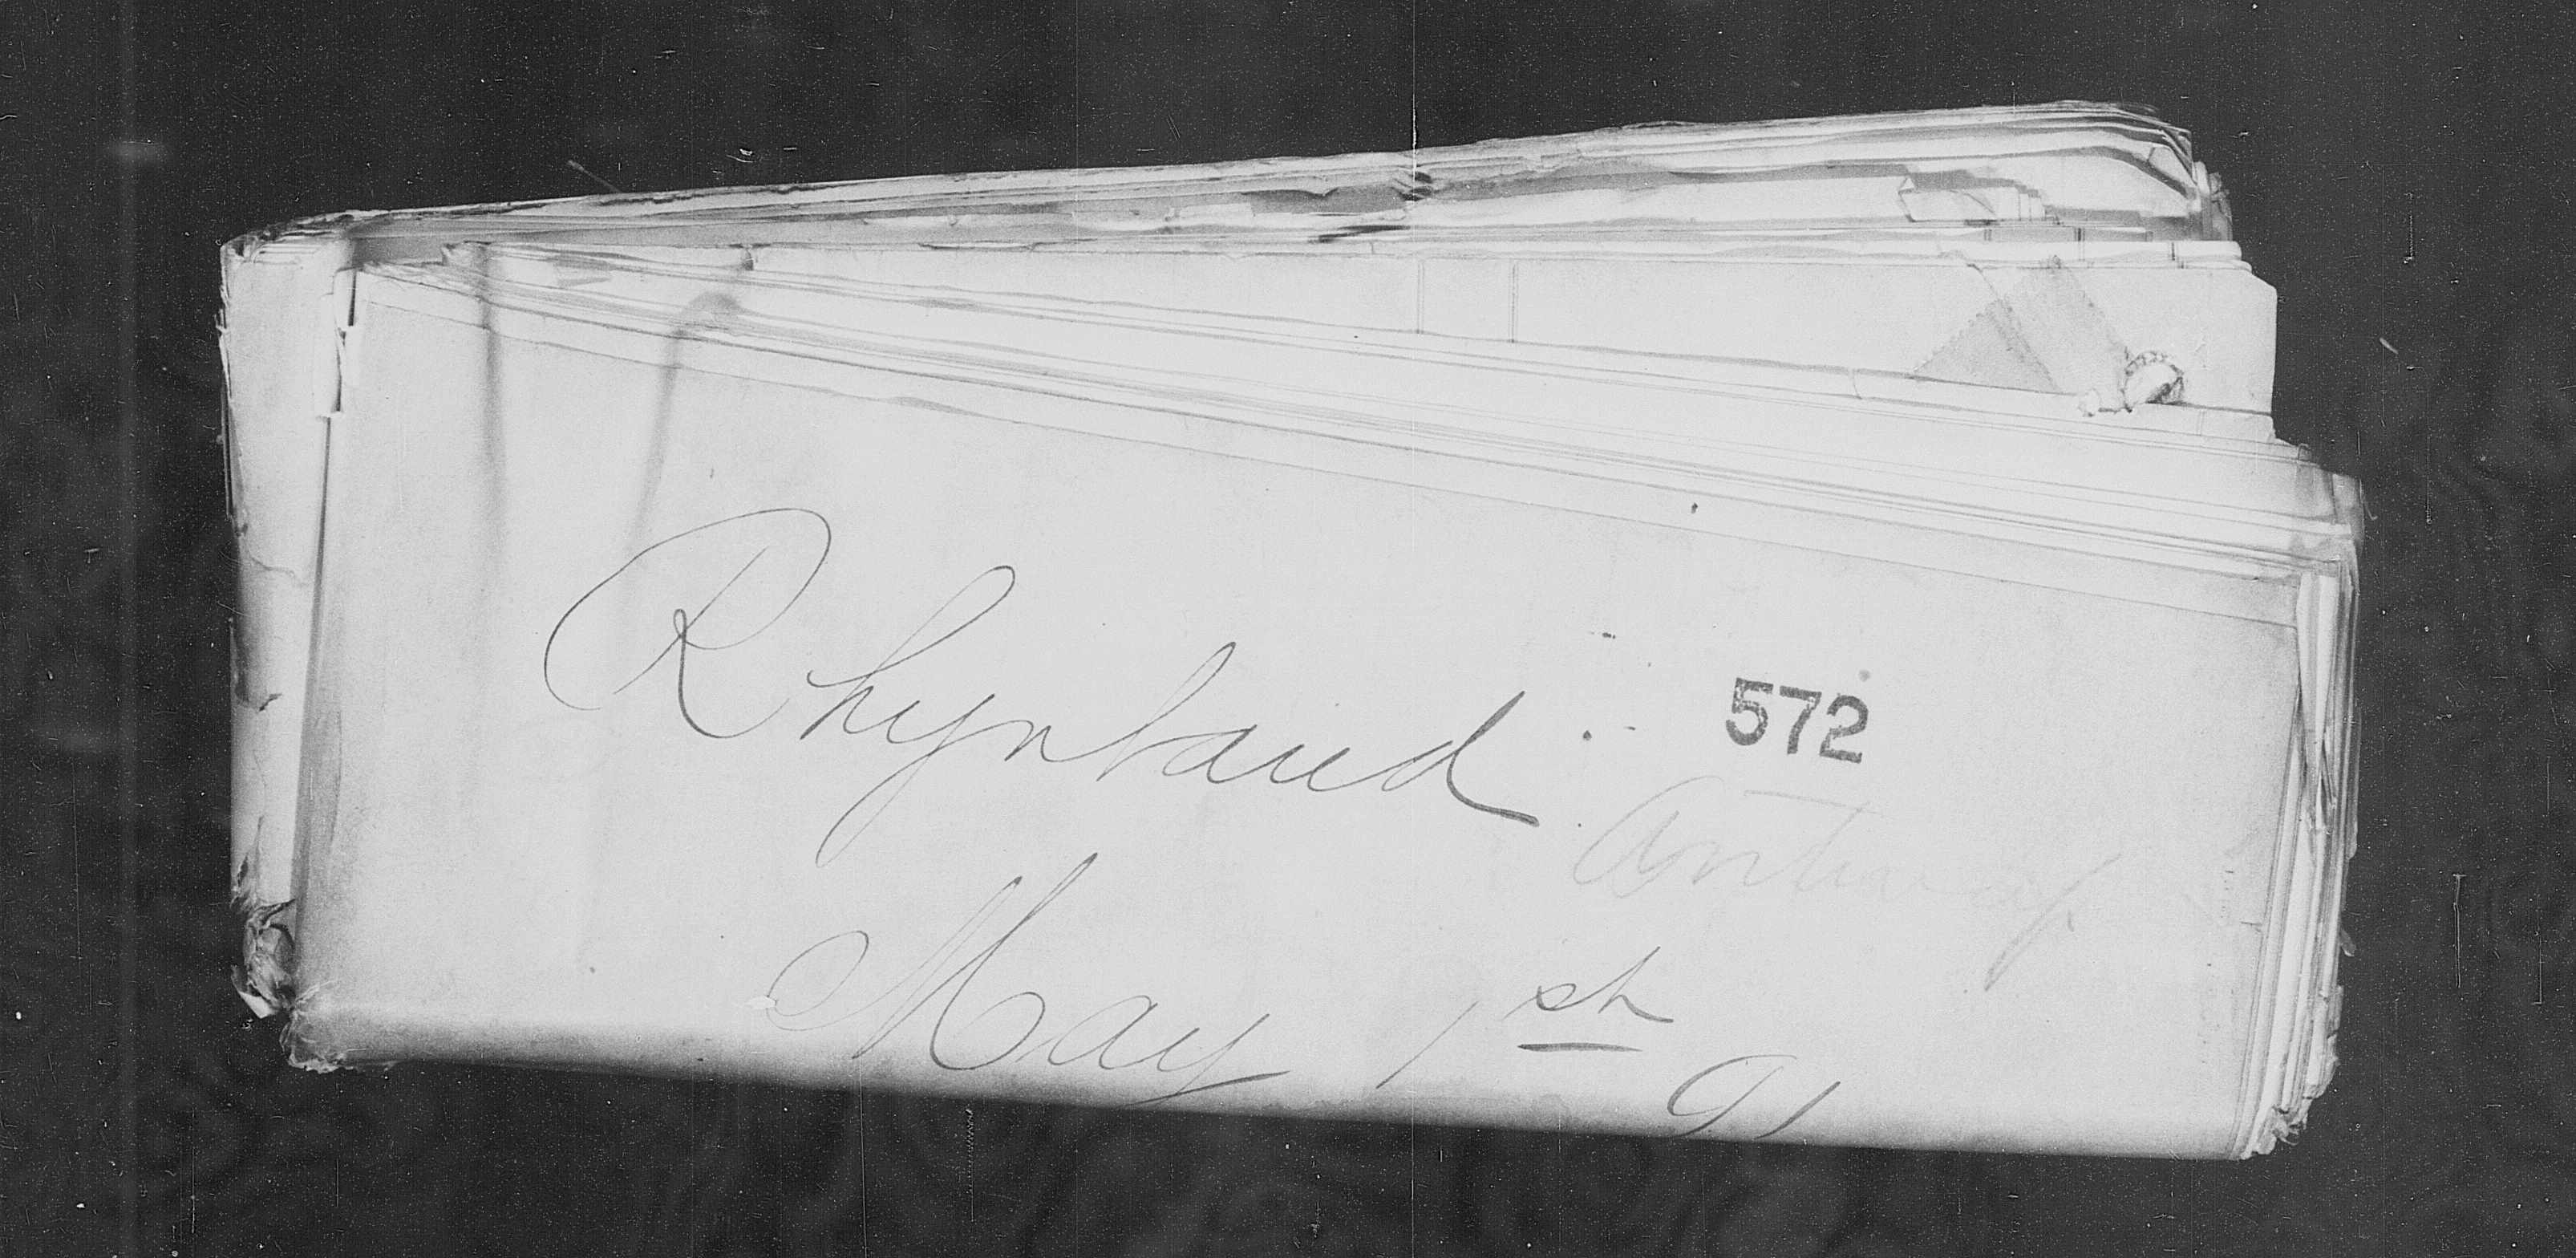 Rhynland
572
Antwerp
May 1st
91